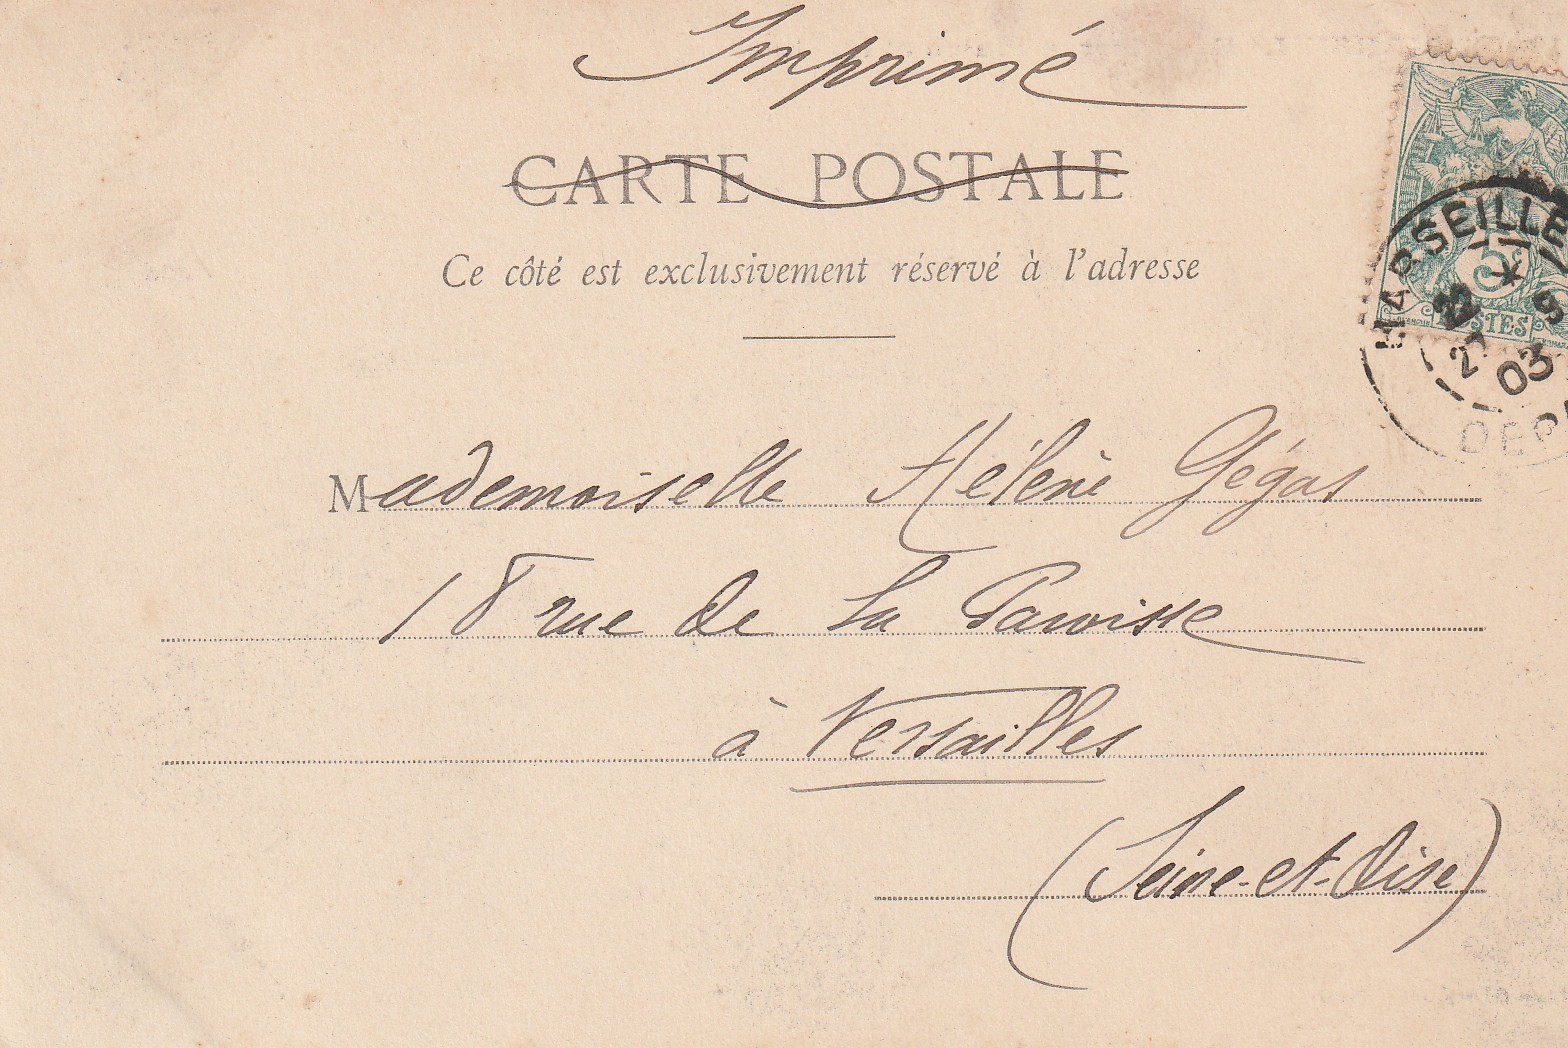 Imprimé
CARTE POSTALE
Ce côté est exclusivement réservé à l'adresse
MARSEILLE
5
POSTES
22 9
03
Mademoiselle Hélène Gégas
18 rue de la Paroisse
à Versailles
(Seine-et-Oise)